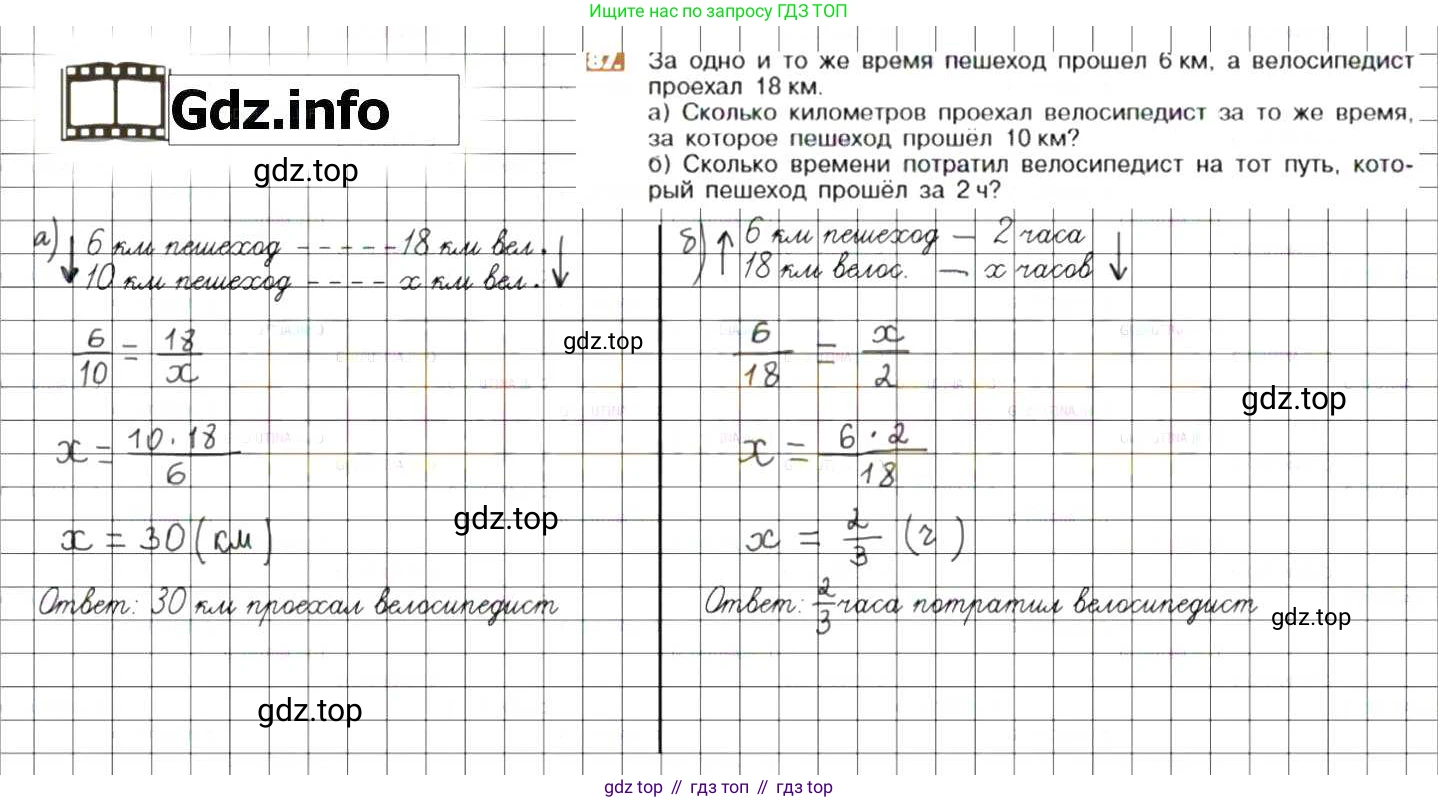 Ищите нас по запросу ГДЗ ТОП
Gdz.info
gdz.top
87. За одно и то же время пешеход прошел 6 км, а велосипедист
проехал 18 км.
а) Сколько километров проехал велосипедист за то же время,
за которое пешеход прошёл 10 км?
б) Сколько времени потратил велосипедист на тот путь, кото-
рый пешеход прошёл за 2 ч?
а) ↓ 6 км пешеход - - - - - 18 км вел. ↓
10 км пешеход - - - - x км вел.
6/10 = 18/x
gdz.top
x = 10 · 18/6
x = 30 (км)
gdz.top
Ответ: 30 км проехал велосипедист
gdz.top
б) ↑ 6 км пешеход — 2 часа ↓
18 км велос. — x часов
6/18 = x/2
gdz.top
x = 6 · 2/18
x = 2/3 (ч)
Ответ: 2/3 часа потратил велосипедист
gdz.top
gdz top // гдз топ // gdz top